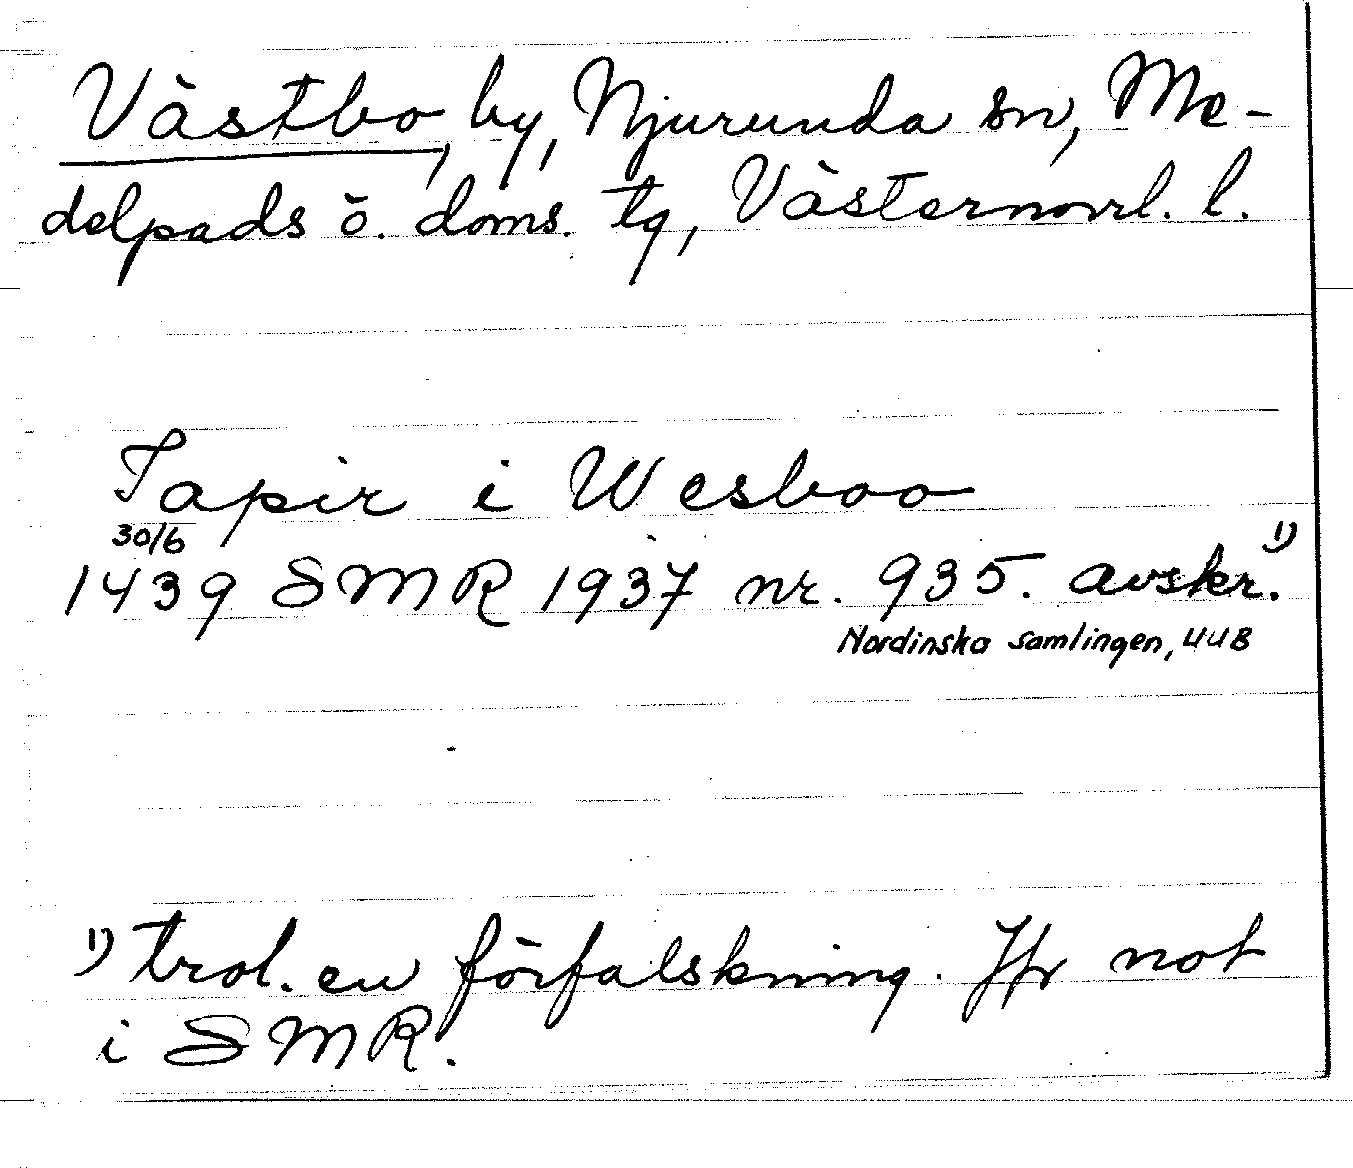 Västbo, by, Njurunda sn, Me-
delpads ö. doms. tg, Västernorrl. l.
Tapir i Wesboo
30/6
1439 SMR 1937 nr. 935. avskr. 1)
Nordinska samlingen, UUB
1) trol. en förfalskning. Jfr not
i SMR.